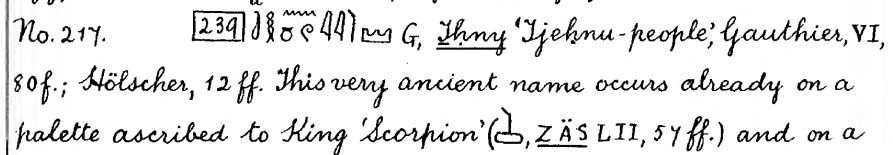 No. 217. 239 G, Ṯḥnw 'Tjeḥnu-people,' Gauthier, VI,
80f.; Hölscher, 12 ff. This very ancient name occurs already on a
palette ascribed to King 'Scorpion' (, ZÄS LII, 57 ff.) and on a